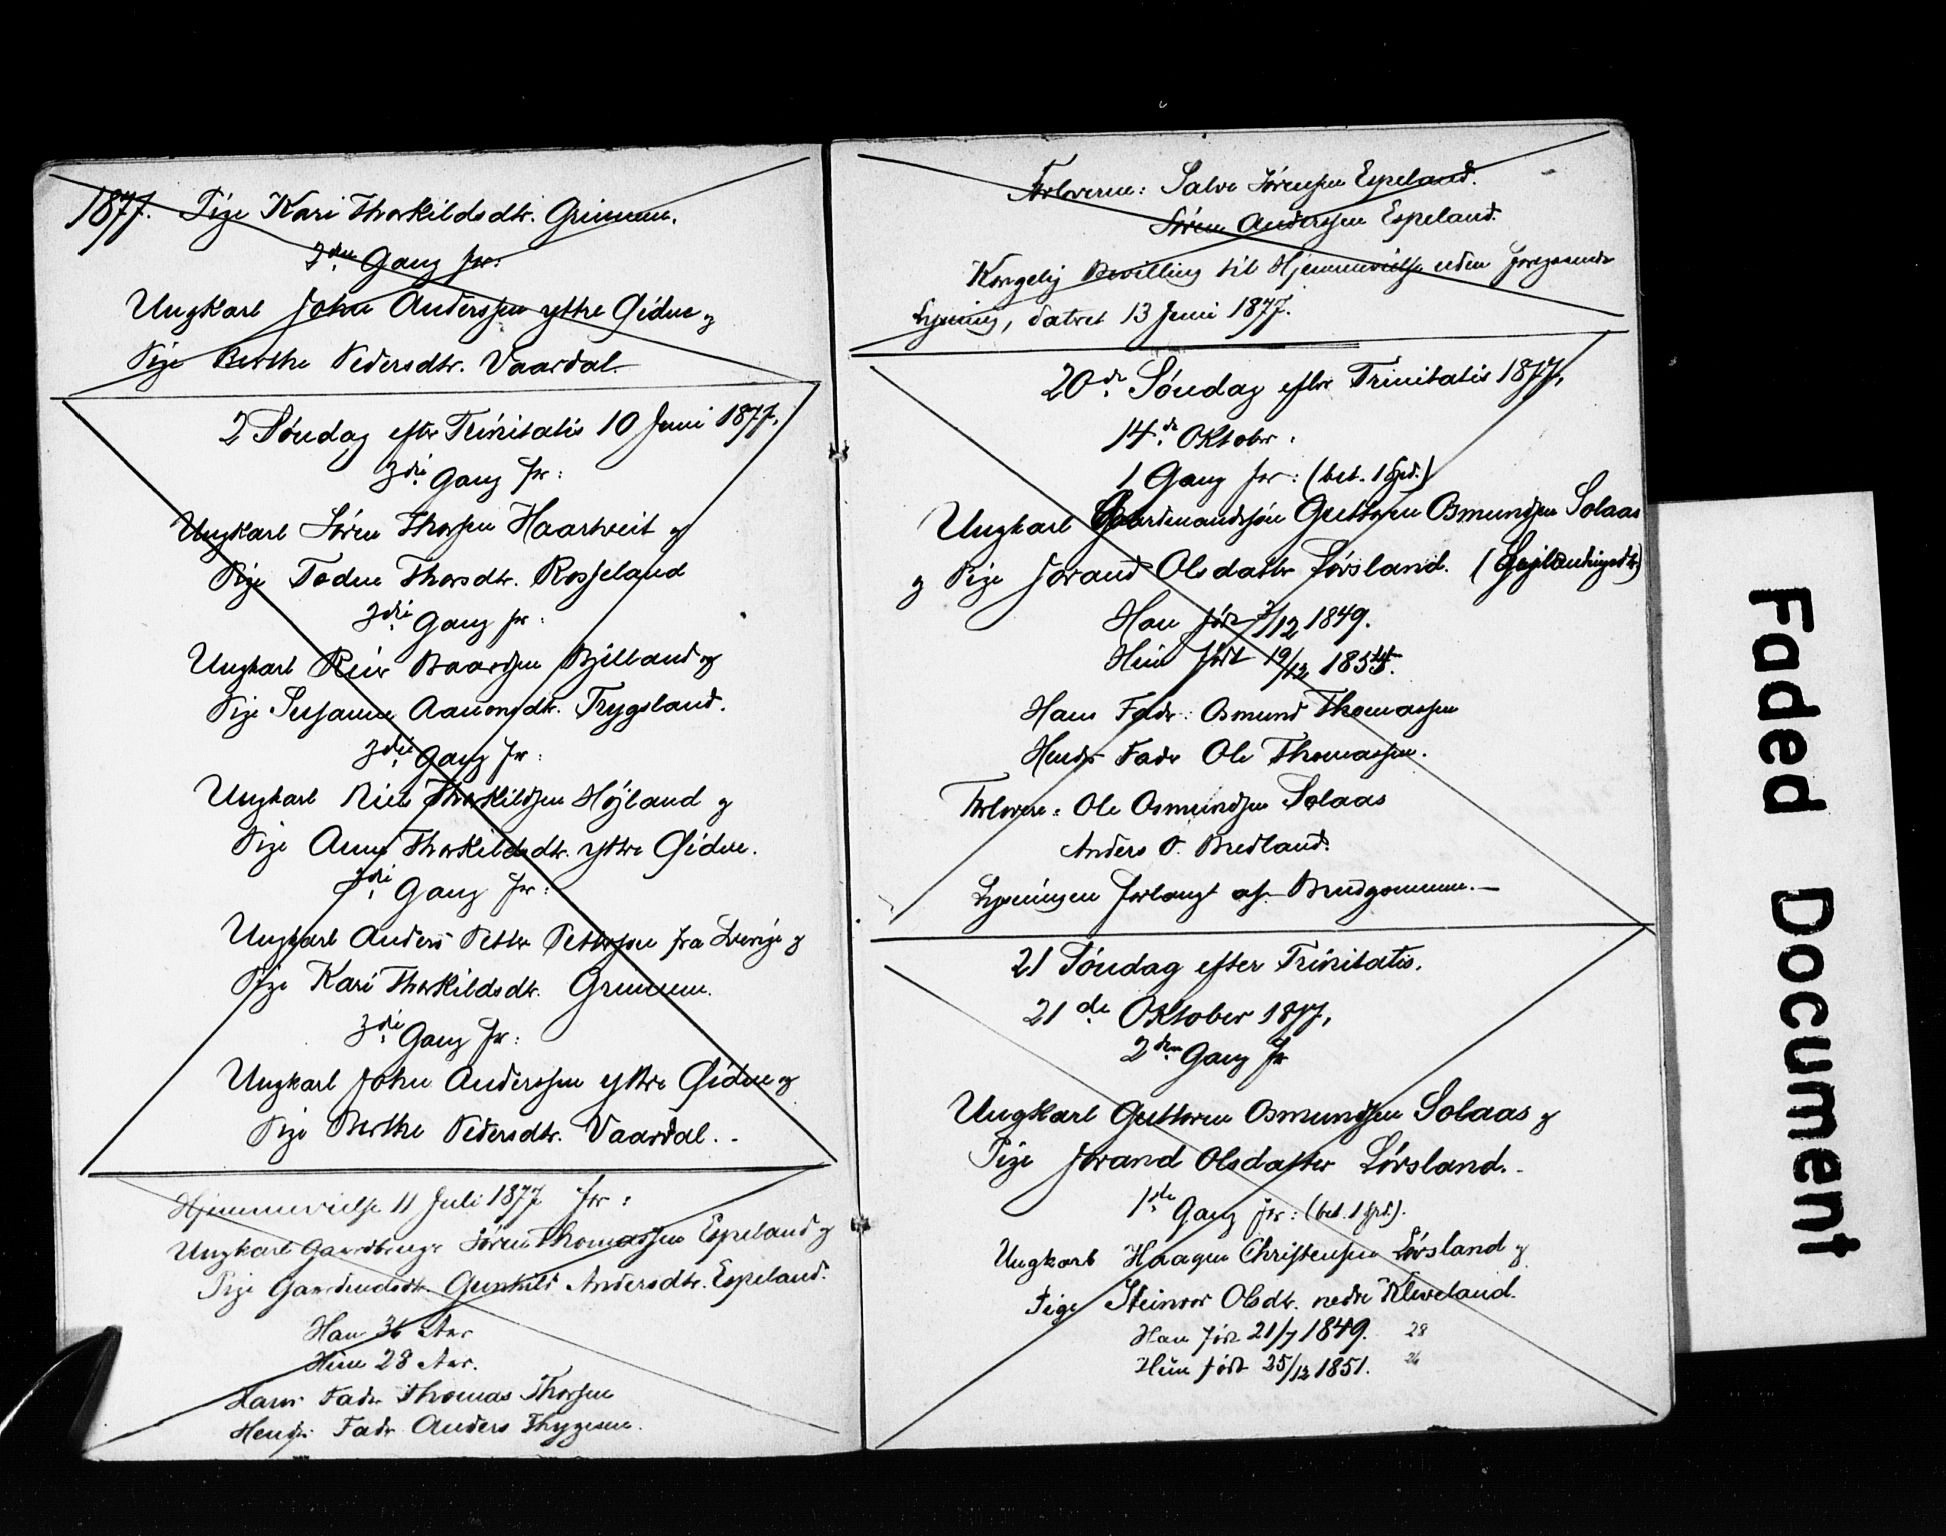 1877. Pige Kari Thorkildsdtr. Grimmen.
2den Gang for:
Ungkarl John Anderssen yttre Öidne og
Pige Berthe Pedersdtr. Vaardal.
2 Söndag efter Trinitatis 10 Juni 1877.
3die Gang for:
Ungkarl Sören Thorsen Haartveit og
Pige Todne Thorsdtr. Rosseland
3die Gang for:
Ungkarl Reier Baardsen Bjelland og
Pige Susanne Aanonsdtr. Trygsland.
3die Gang for:
Ungkarl Niels Thorkildsen Höjland og
Pige Anne Thorkildsdtr. yttre Öidne.
3die Gang for:
Ungkarl Anders Petter Pettersson fra Sverige og
Pige Kari Thorkildsdtr. Grimmen.
3die Gang for:
Ungkarl John Anderssen yttre Öidne og
Pige Berthe Pedersdtr. Vaardal.
Hjemmevielse 11 Juli 1877 for:
Ungkarl Gaardbruger Sören Thomassen Espeland og
Pige Gaardmdsdtr. Gunhild Andersdtr. Espeland.
Han 36 Aar
Hun 28 Aar.
Hans Fader Thomas Thorsen
Hendes Fader Anders Thygesen.
Forloverne: Salve Sörensen Espeland.
Sören Anderssen Espeland.
Kongelig Bevilling til Hjemmevielse uden foregaaende
Lysning, dateret 13 Juni 1877.
20de Söndag efter Trinitatis 1877,
14de Oktober.
1 Gang for: (bet. 1 Spd.)
Ungkarl Gaardmandssön Guttorm Osmundsen Solaas
og Pige Jorand Olsdatter Lövsland.
Han föd 3/12 1849.
Hun födt 19/12 1854.
Hans Fader: Osmund Thomassen
Hendes Fader Ole Thomassen.
Forlovere: Ole Osmundsen Solaas
Anders O. Bredland.
Lysningen forlangt af Brudgommen.—
21 Söndag efter Trinitatis.
21de Oktober 1877,
2den Gang for
Ungkarl Guttorm Osmundsen Solaas og
Pige Jorand Olsdatter Lövsland.
1ste Gang for: (bet. 1 Spd.).
Ungkarl Haagen Christensen Lövsland og
Pige Steinvor Olsdtr. nedre Kleveland.
Han föd 21/7 1849. 28
Hun födt 25/12 1851. 26
Faded Document